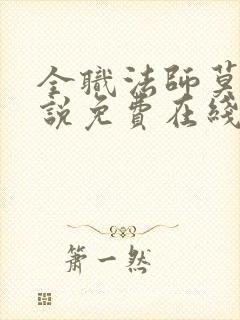 全職法師莫
說免費在綫
簫一然